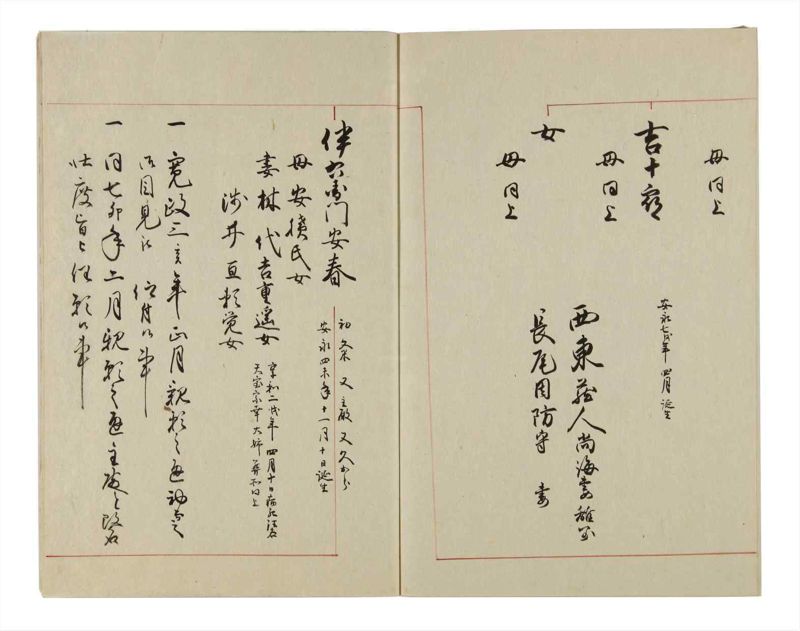 母同上
吉十郎
安永七戌年 四月 誕生
母同上
女
西東蔵人尚海妻 離空
長尾周防守 妻
母同上
伴右衛門安春
初久米 又主殿 又久
安永四未年十一月十日誕生
母安積氏女
妻林代吉重遥女
享和二戌年四月十日病死法名
天室宗幸大姉葬和同上
渉井直頼覚女
一 寛政三亥年正月親類之通初而
御目見被 仰付候事
一 同七卯年二月親願之通主殿と改名
仕度旨 任願候事